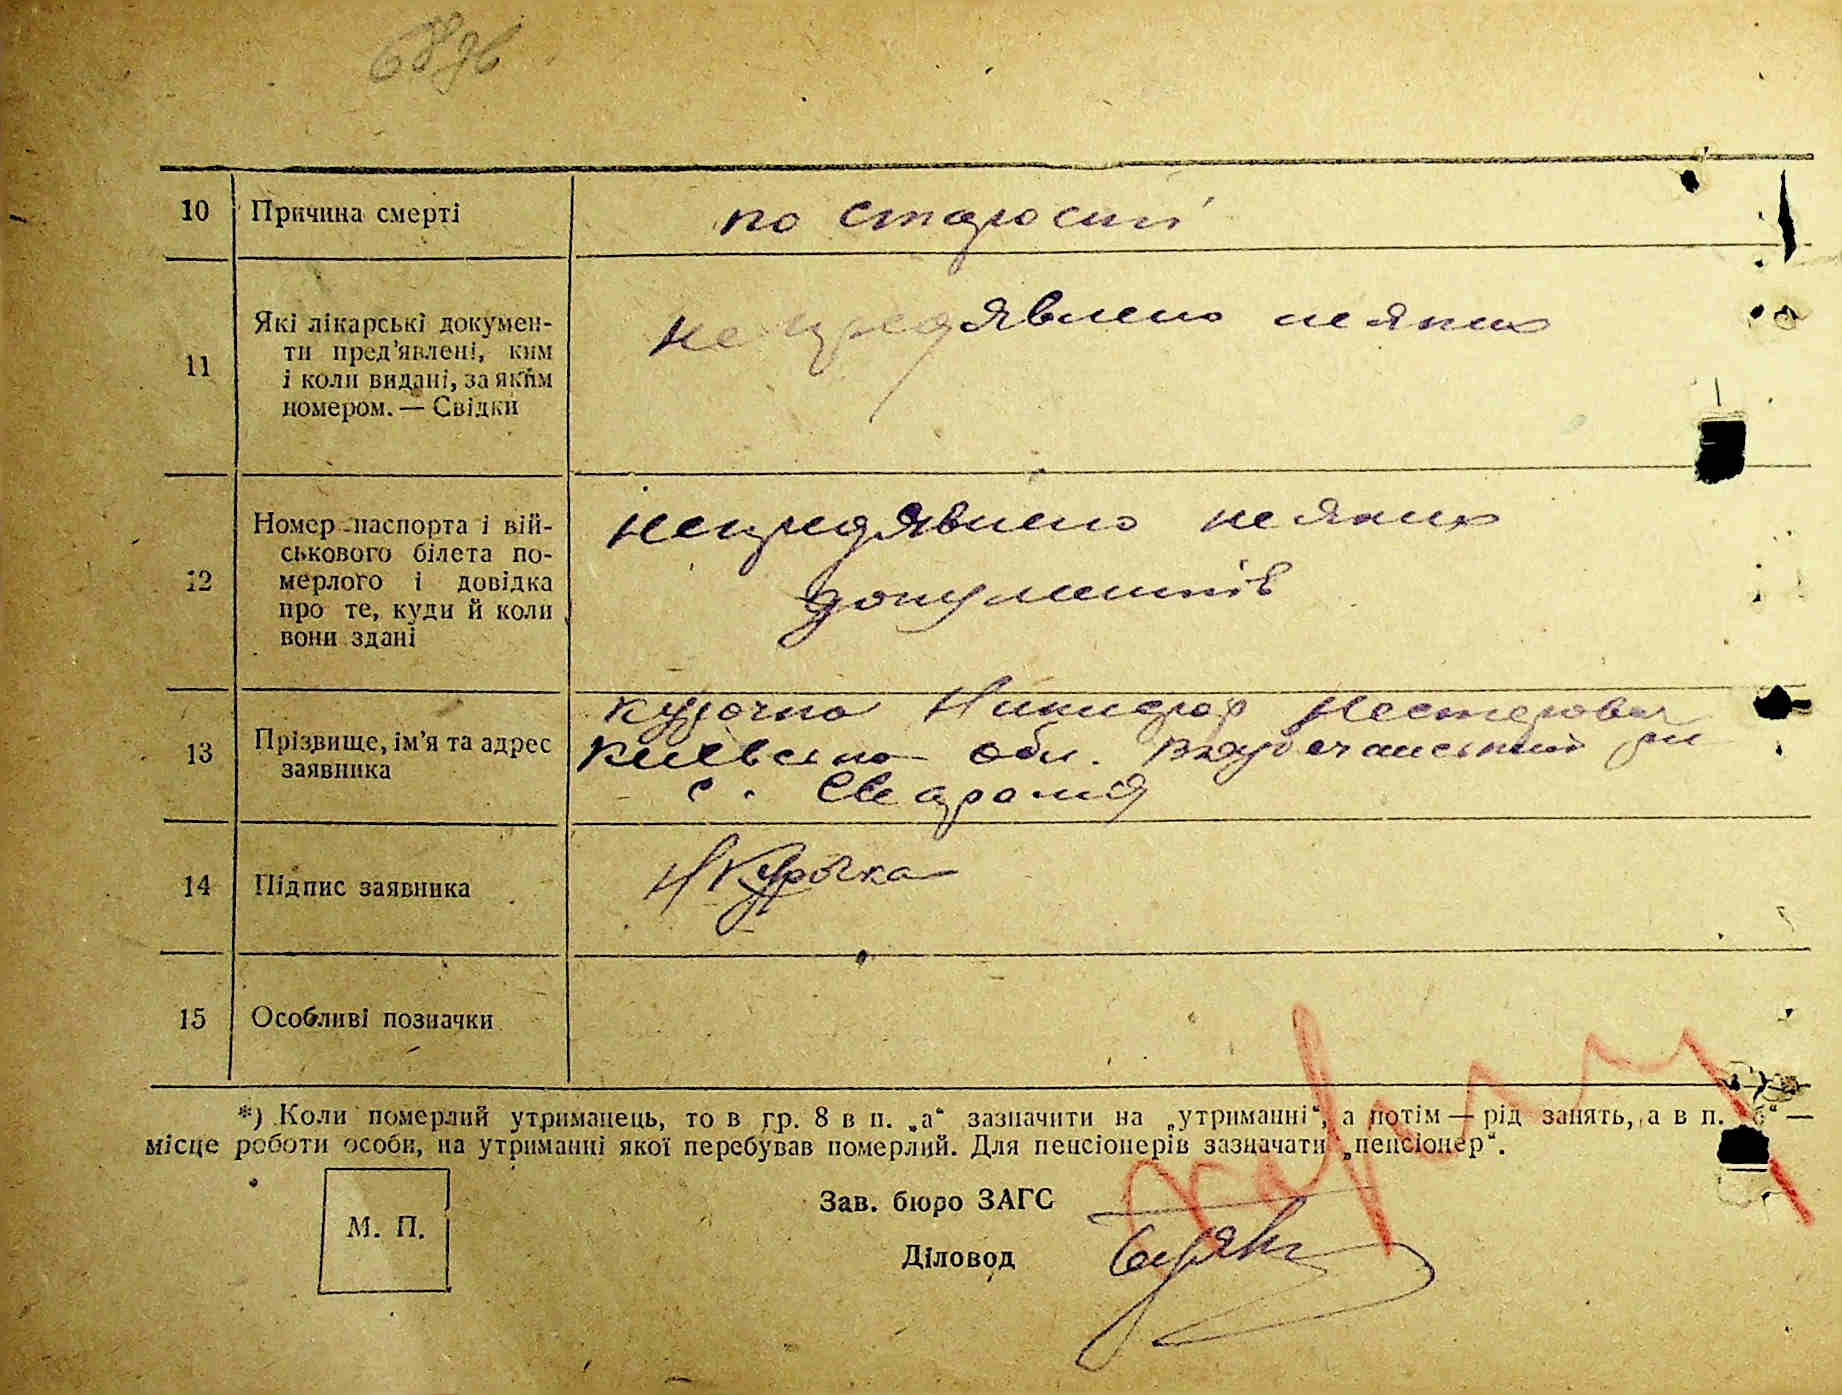 6896
10 Причина смерті по старості
11 Які лікарські докумен-
ти пред'явлені, ким
і коли видані, за яким
номером. — Свідки
непредявлено неяких
12 Номер паспорта і вій-
ськового білета по-
мерлого і довідка
про те, куди й коли
вони здані
непредявлено неяких
документів
13 Прізвище, ім'я та адрес
заявника
Курочка Никифор Нестерович
Київська обл.
с.
14 Підпис заявника Н Курочка
15 Особливі позначки
*) Коли померлий утриманець, то в гр. 8 в п. „а“ зазначити на „утриманні“, а потім — рід занять, а в п. „б“ —
місце роботи особи, на утриманні якої перебував померлий. Для пенсіонерів зазначати „пенсіонер“.
М. П.
Зав. бюро ЗАГС
Діловод